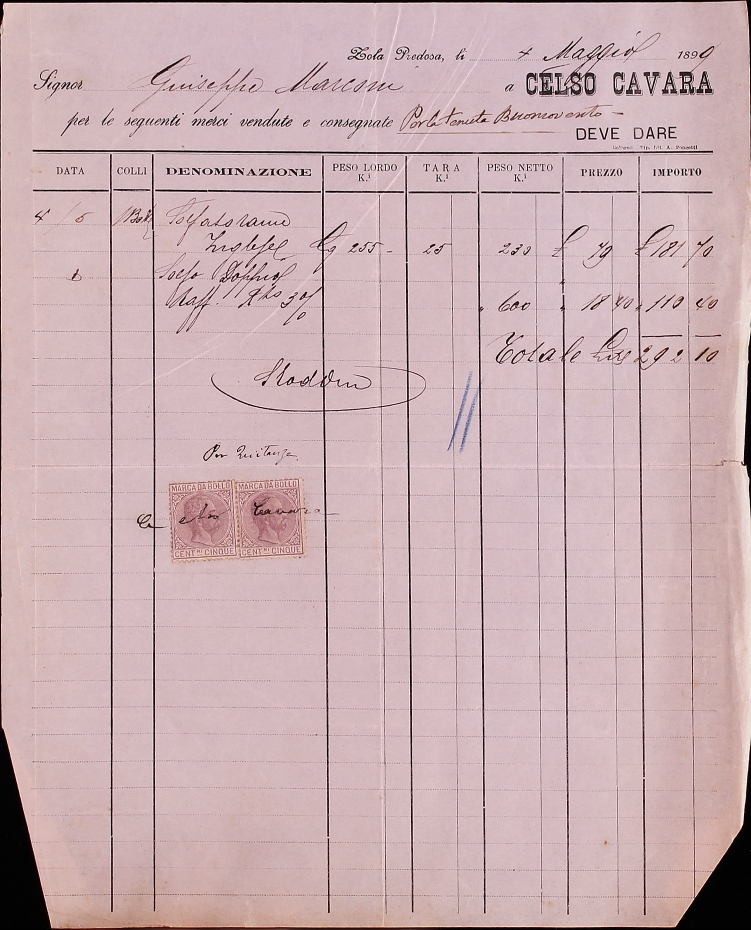 Zola Predosa, li 4 Maggio 1899
Signor Guiseppe Marconi a CELSO CAVARA
per le seguenti merci vendute e consegnate Per la tenuta Buonvento
DEVE DARE
DATA COLLI DENOMINAZIONE PESO LORDO K.i TARA K.i PESO NETTO K.i PREZZO IMPORTO
4 / 5 Solfato rame
Inglese Kg 255 - 25 230 £ 79 £ 181 70
Solfo Doppio
Raff. 3% " 600 " 18 40 " 110 40
Totale Lire 292 10
Per Quitanza
MARCA DA BOLLO MARCA DA BOLLO
Celso Cavara
CENT.MI CINQUE CENT.MI CINQUE